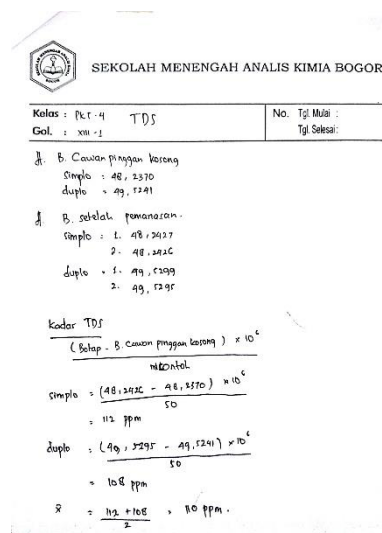 SEKOLAH MENENGAH ANALIS KIMIA BOGOR
Kelas : PKT-4 TDS
Gol. : XIII-1
No. Tgl. Mulai :
Tgl. Selesai :
B. Cawan pinggan kosong
Simplo : 48,2370
duplo = 49,5241
B. setelah pemanasan.
simplo : 1. 48,2427
2. 48,2426
duplo = 1. 49,5299
2. 49,5295
Kadar TDS
(Botap - B. Cawan pinggan kosong) × 10⁶
simplo = (48,2426 - 48,2370) × 10⁶
50
= 112 ppm
duplo = (49,5295 - 49,5241) × 10⁶
50
= 108 ppm
x̄ = 112 + 108 = 110 ppm.
2